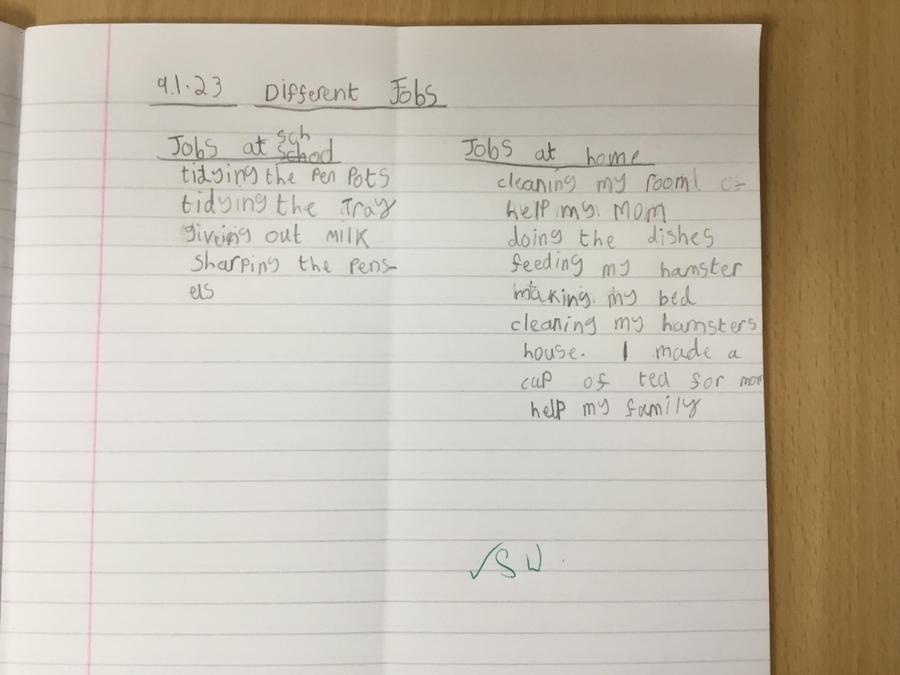 9.1.23 Different Jobs
Jobs at school
tidying the pen pots
tidying the Tray
giveing out MilK
Sharping the pens-
els
Jobs at home
cleaning my room
help my MoM
doing the dishes
feeding my hamster
making my bed
cleaning my hamsters
house. I made a
cup of tea for mom
help my family
✓SW.